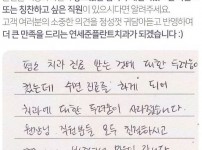 또는 칭찬하고 싶은 직원이 있으시다면 알려주세요.
고객 여러분의 소중한 의견을 정성껏 귀담아듣고 반영하며
더 큰 만족을 드리는 연세준플란트치과가 되겠습니다 :)
평소 치과 진료 받는 것에 대한 두려움이
컸는데 수면 진료를 하게 되어
치과에 대한 두려움이 사라졌습니다.
원장님 직원분들 모두 친절하시고